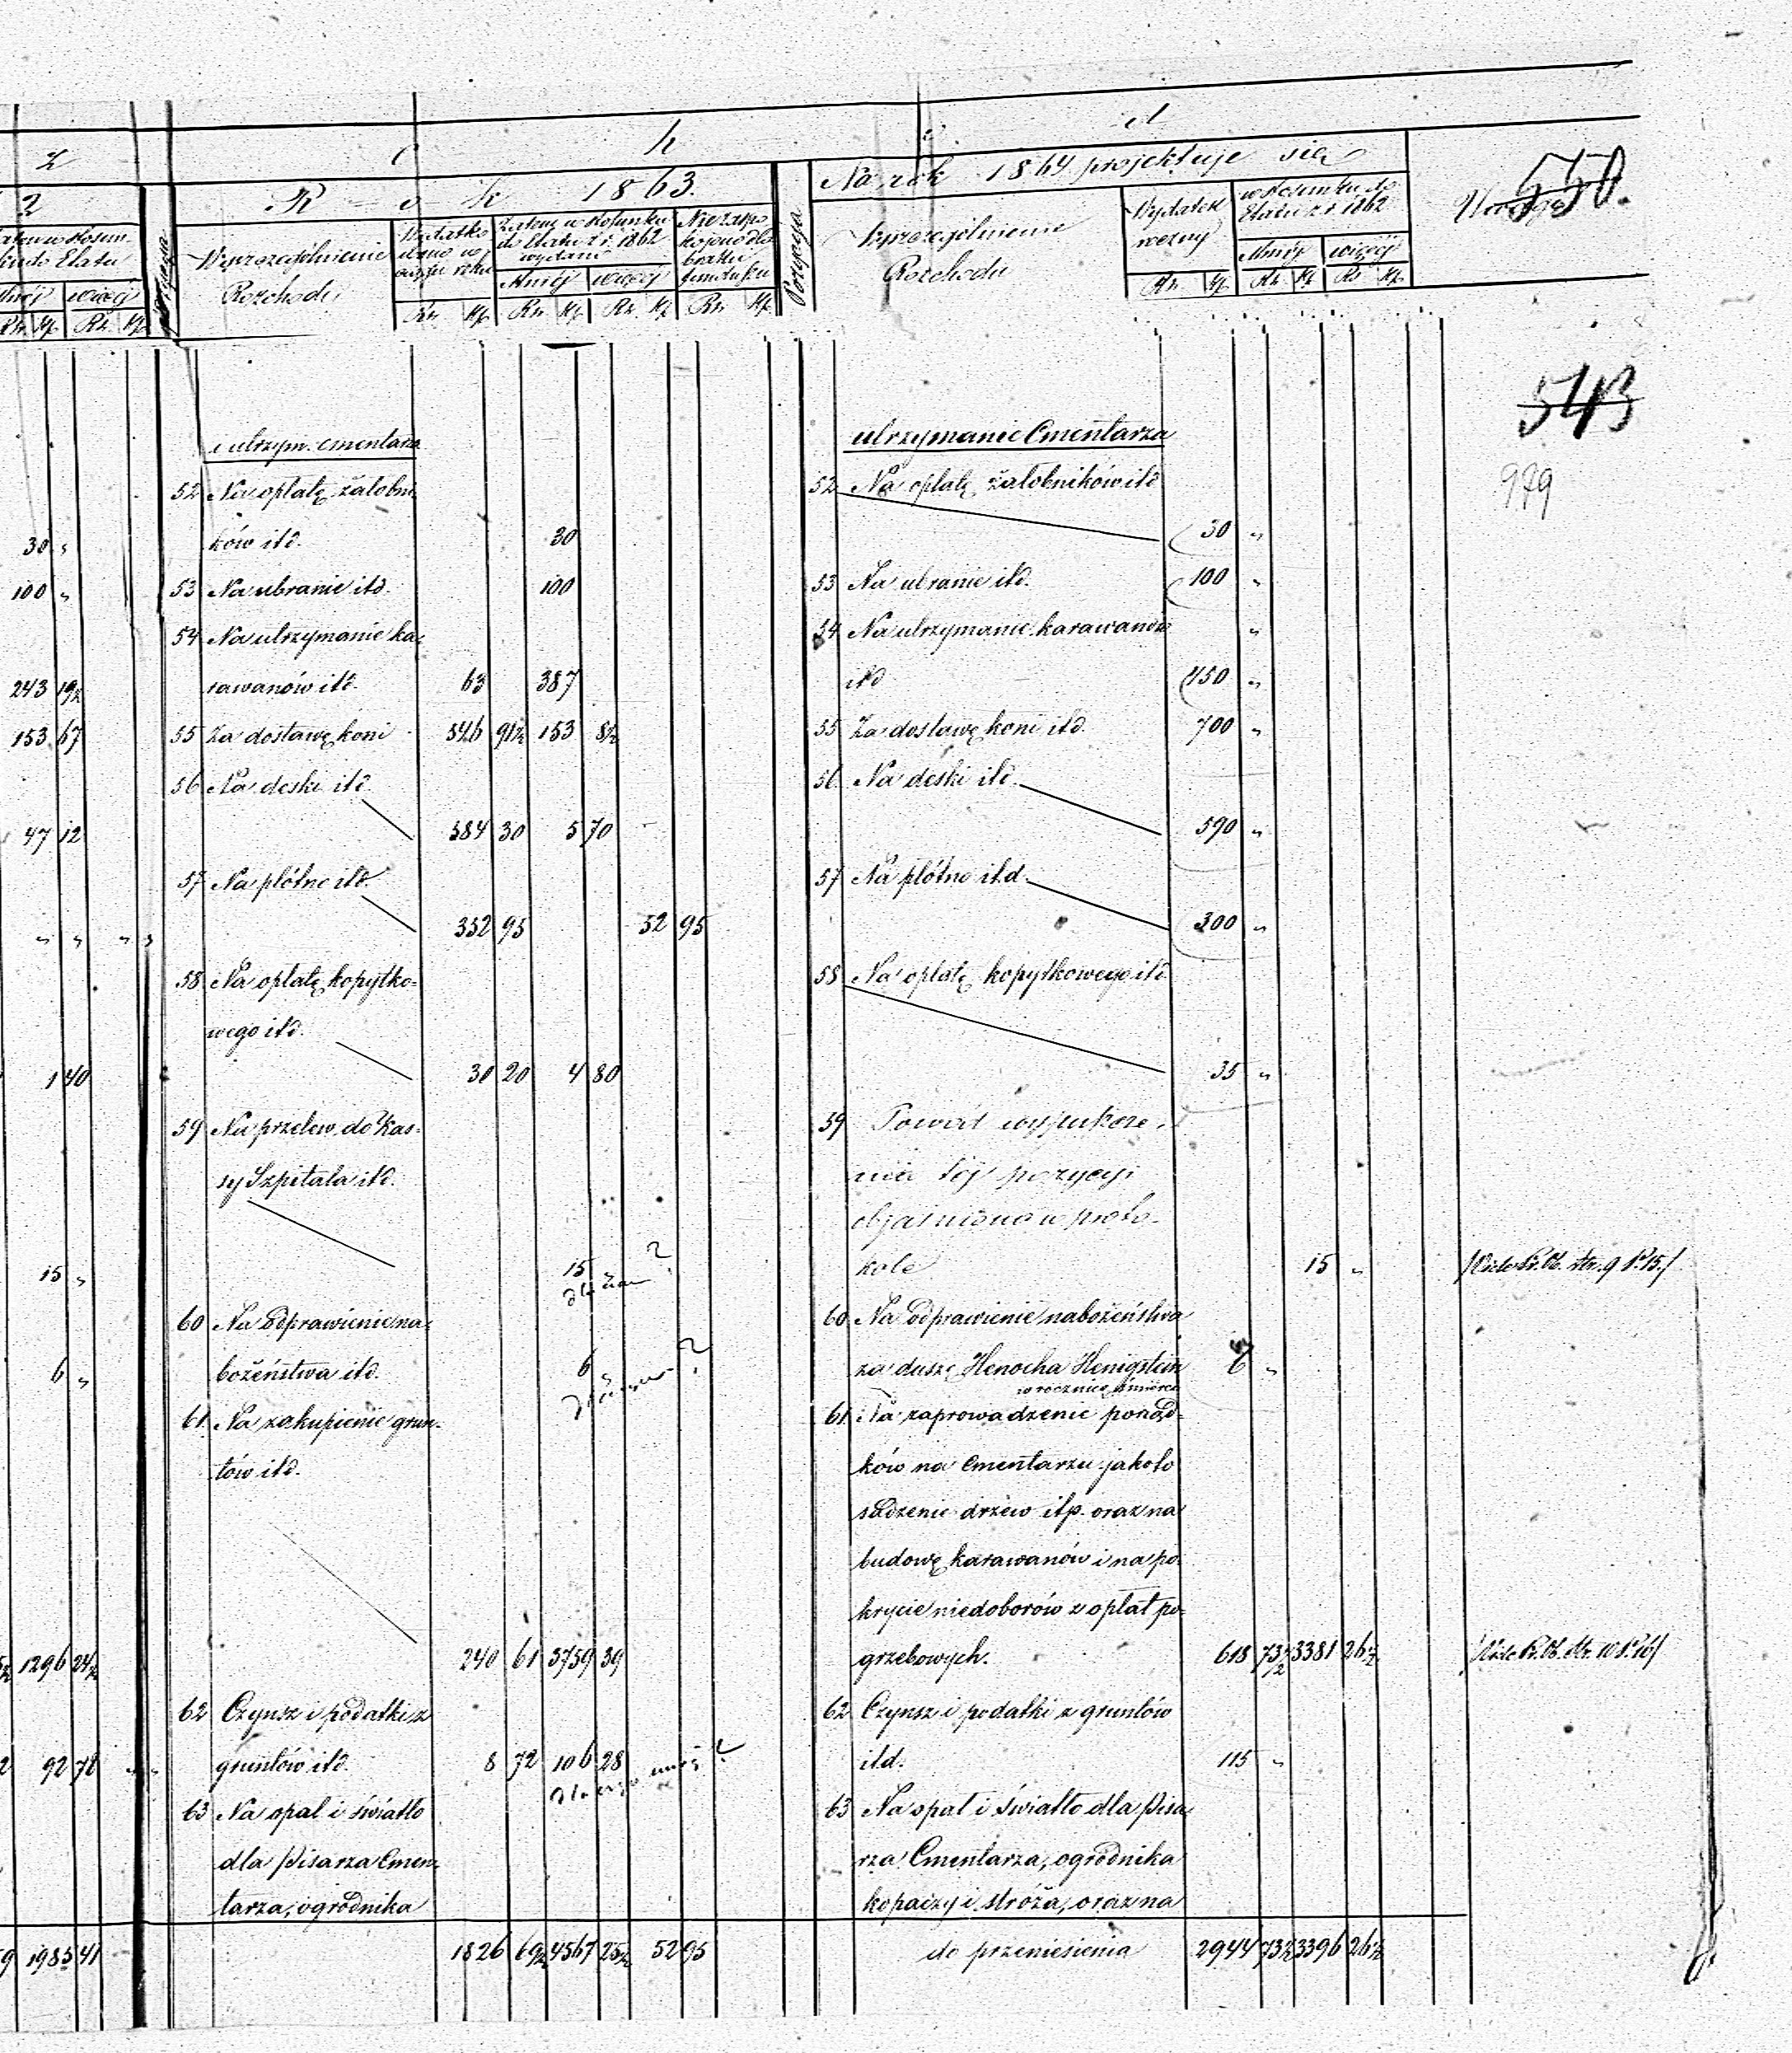 z c h ó d
2
R o k 1863.
Na rok 1864 projektuje się
550.
Mniej więcej
Rs. Kp. Rs. Kp.
Wyszczególnienie
Rozchodu
Wydatkowano w ciągu roku
Zatem w stosunku
do Etatu z r. 1862
wydano
Mniej więcej
Rs. Kp. Rs. Kp. Rs. Kp. Rs. Kp.
Pozycya
Wyszczególnienie
Rozchodu
Wydatek
roczny
w stosunku do
Etatu z r. 1862
Mniej więcej
Rs. Kp. Rs. Kp. Rs. Kp.
543
979
i utrzym. cmentarza
utrzymanie Cmentarza
52 Na opłatę żałobni-
52 Na opłatę żałobników itd
30 „ ków itd. 30
30 „
100 „ 53 Na ubranie itd. 100
53 Na ubranie itd. 100 „
54 Na utrzymanie ka-
54 Na utrzymanie karawanów „
243 19½ rawanów itd. 63 387
itd 450 „
153 67 55 Za dostawę koni 546 91½ 153 8½
55 Za dostawę koni itd. 700 „
56 Na deski itd.
56 Na deski itd.
47 12 584 30 5 70
590 „
57 Na płótno itd.
57 Na płótno itd.
„ „ „ „ 352 95 52 95
300 „
58 Na opłatę kopytko-
58 Na opłatę kopytkowego itd
wego itd.
1 40 30 20 4 80
35 „
59 Na przelew do Kas-
59 Powód wypuszcze-
sy Szpitala itd.
nia tej pozycyi
objaśniono w proto-
15 „ 15 ?
kole 15 „ /Vide Pr. Ob. Str. 9 P. 15./
60 Na odprawienie na-
60 Na odprawienie nabożeństwa
6 „ bożeństwa itd. 6 ?
za duszę Henocha Henigstein 6 „
w rocznicę śmierci
61 Na zakupienie grun-
61 Na zaprowadzenie porząd-
tów itd.
ków na Cmentarzu jakoto
sadzenie drzew itp. oraz na
budowę karawanów i na po-
krycie niedoborów z opłat po-
1296 24½ 240 61 3759 39
grzebowych. 618 73½ 3381 26½ /Vide Pr. Ob. Str. 10 P. 16/
62 Czynsz i podatki z
62 Czynsz i podatki z gruntów
92 78 „ „ gruntów itd. 8 72 106 28 ?
itd. 115 „
63 Na opał i światło
63 Na opał i światło dla Pisa-
dla Pisarza Cmen-
rza Cmentarza, ogrodnika
tarza, ogrodnika
kopaczy i stróża, oraz na
9 1985 41 1826 69½ 4567 25½ 52 95
do przeniesienia 2944 73½ 3396 26½